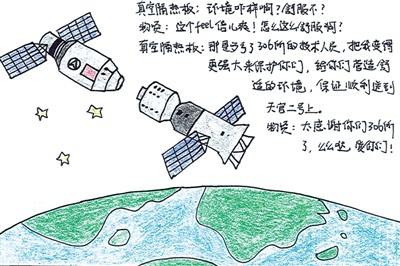 真空隔热板：环境咋样啊？舒服不？
物资：这个feel倍儿爽！怎么这么舒服啊？
真空隔热板：那是亏了306所的技术人员，把我变得
更强大来保护你们，给你们营造舒
适的环境，保证顺利送到
天宫二号上。
物资：太感谢你们306所
了，么么哒，爱你们！